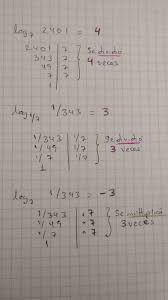 log₇ 2401 = 4
2401 | 7
343 | 7
49 | 7
7 | 7
1
Se dividió
4 veces
log₁/₇ 1/343 = 3
1/343 | 1/7
1/49 | 1/7
1/7 | 1/7
1
Se dividió
3 veces
log₇ 1/343 = -3
1/343 | • 7
1/49 | • 7
1/7 | • 7
1
Se multiplicó
3 veces